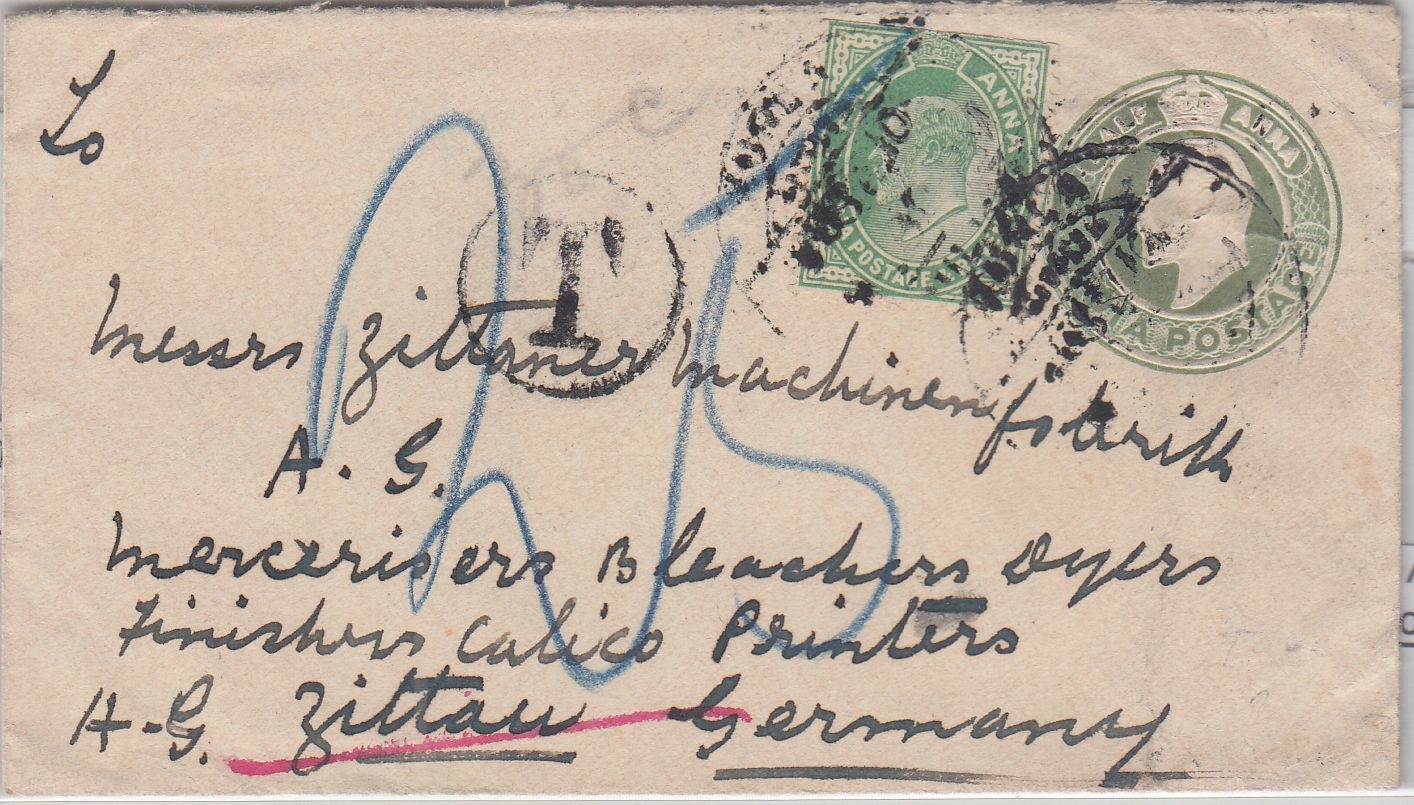 To
HALF ANNA
ANNA
INDIA POSTAGE
INDIA POSTAGE
T
25
Messrs Zittaner Machinenfabrik
A. G.
Mercerisers Bleachers Dyers
Finishers Calico Printers
A-G. Zittau Germany